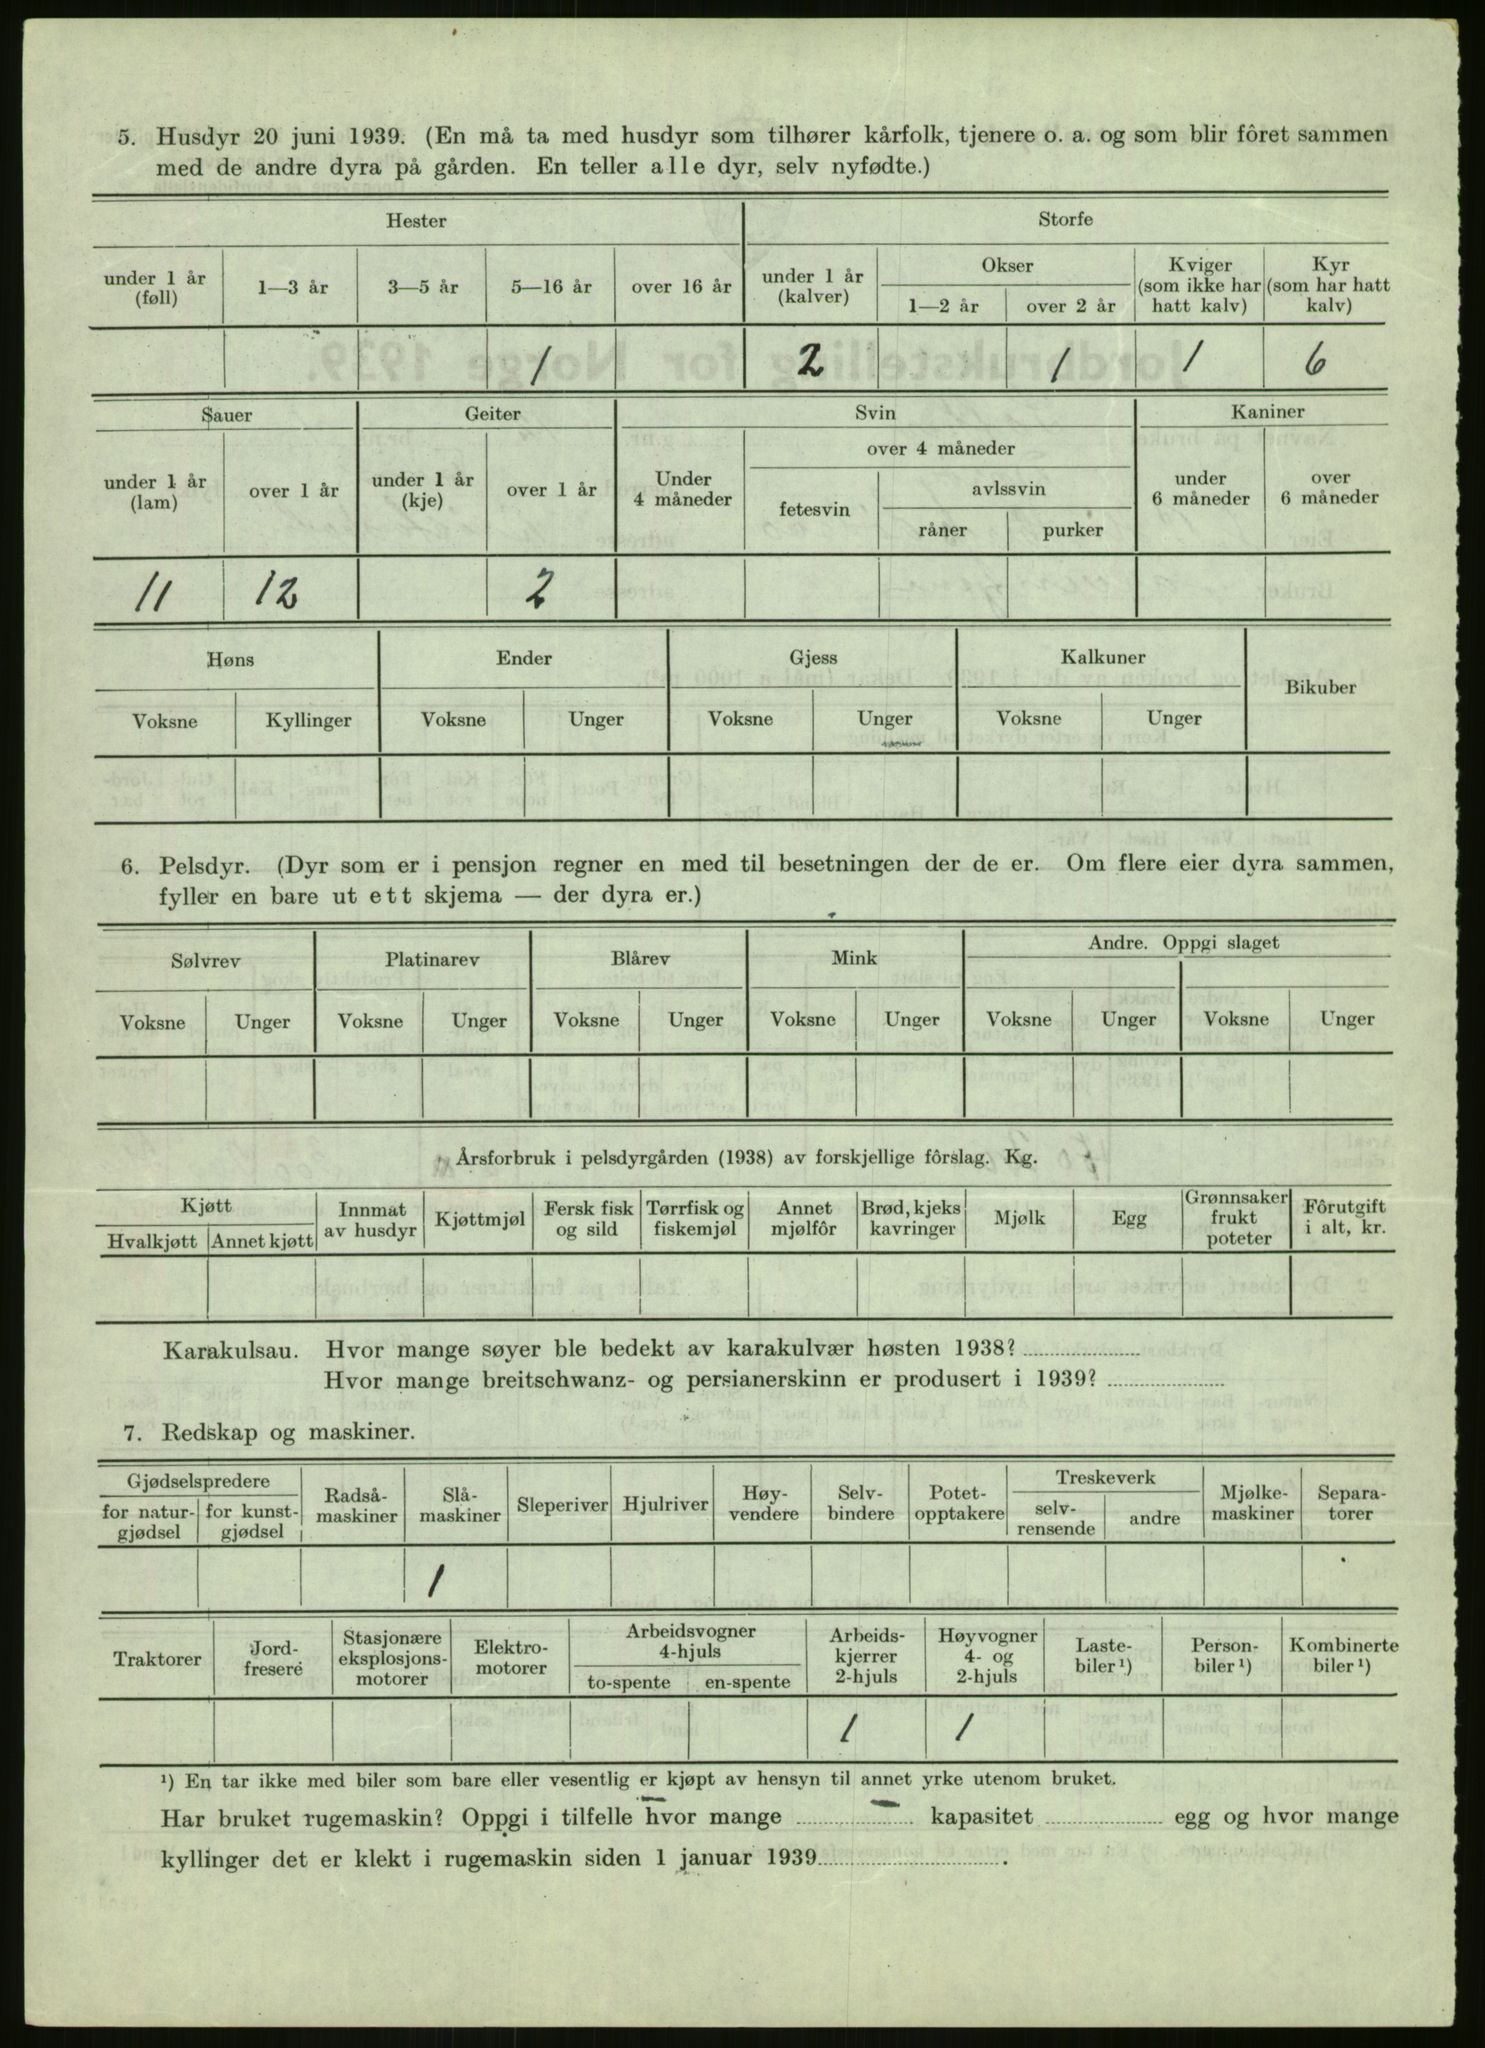 5. Husdyr 20 juni 1939. (En må ta med husdyr som tilhører kårfolk, tjenere o. a. og som blir fôret sammen
med de andre dyra på gården. En teller alle dyr, selv nyfødte.)
Hester Storfe
under 1 år (føll) 1—3 år 3—5 år 5—16 år over 16 år under 1 år (kalver) Okser 1—2 år over 2 år Kviger (som ikke har hatt kalv) Kyr (som har hatt kalv)
1 2 1 1 6
Sauer Geiter Svin Kaniner
under 1 år (lam) over 1 år under 1 år (kje) over 1 år Under 4 måneder over 4 måneder fetesvin avlssvin råner purker under 6 måneder over 6 måneder
11 12 2
Høns Ender Gjess Kalkuner Bikuber
Voksne Kyllinger Voksne Unger Voksne Unger Voksne Unger
6. Pelsdyr. (Dyr som er i pensjon regner en med til besetningen der de er. Om flere eier dyra sammen,
fyller en bare ut ett skjema — der dyra er.)
Sølvrev Platinarev Blårev Mink Andre. Oppgi slaget
Voksne Unger Voksne Unger Voksne Unger Voksne Unger Voksne Unger Voksne Unger
Årsforbruk i pelsdyrgården (1938) av forskjellige fôrslag. Kg.
Kjøtt Hvalkjøtt Annet kjøtt Innmat av husdyr Kjøttmjøl Fersk fisk og sild Tørrfisk og fiskemjøl Annet mjølfôr Brød, kjeks kavringer Mjølk Egg Grønnsaker frukt poteter Fôrutgift i alt, kr.
Karakulsau. Hvor mange søyer ble bedekt av karakulvær høsten 1938?
Hvor mange breitschwanz- og persianerskinn er produsert i 1939?
7. Redskap og maskiner.
Gjødselspredere for natur-gjødsel for kunst-gjødsel Radså-maskiner Slå-maskiner Sleperiver Hjulriver Høy-vendere Selv-bindere Potet-opptakere Treskeverk selv-rensende andre Mjølke-maskiner Separa-torer
1
Traktorer Jord-fresere Stasjonære eksplosjons-motorer Elektro-motorer Arbeidsvogner 4-hjuls to-spente en-spente Arbeids-kjerrer 2-hjuls Høyvogner 4- og 2-hjuls Laste-biler¹) Person-biler¹) Kombinerte biler¹)
1 1
¹) En tar ikke med biler som bare eller vesentlig er kjøpt av hensyn til annet yrke utenom bruket.
Har bruket rugemaskin? Oppgi i tilfelle hvor mange — kapasitet egg og hvor mange
kyllinger det er klekt i rugemaskin siden 1 januar 1939 .